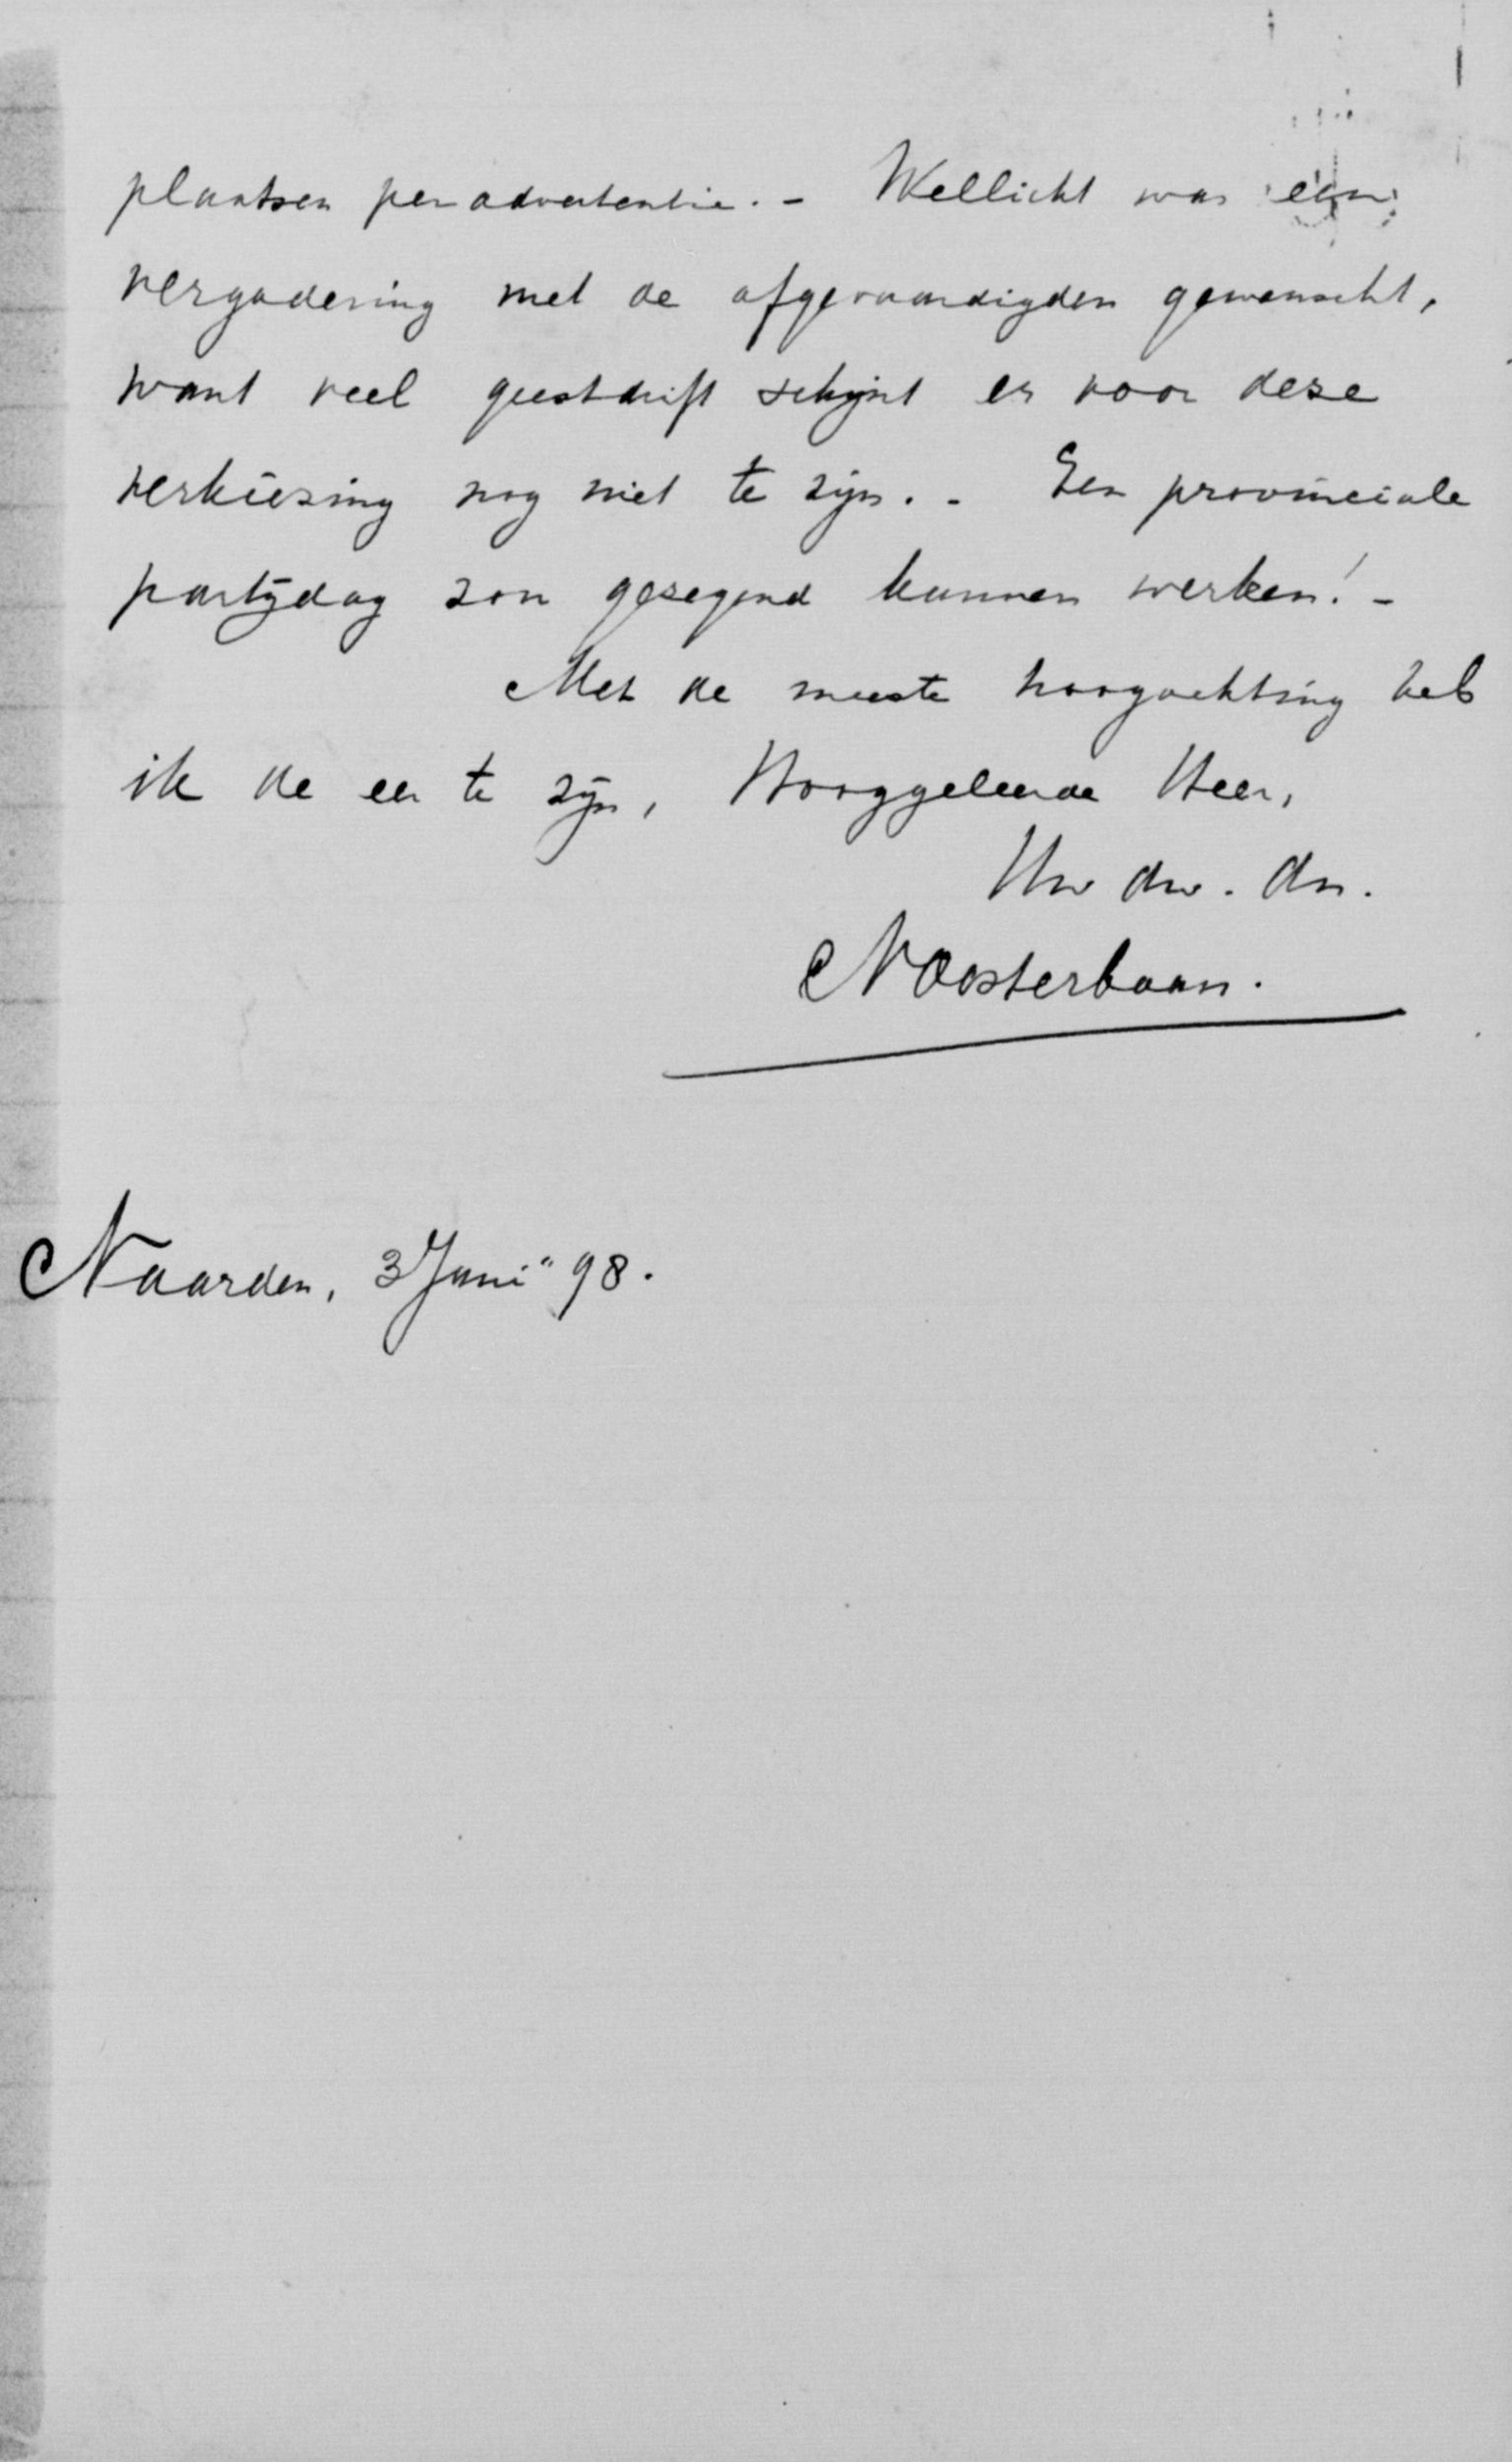 plaatsen per advertentie. - Wellicht was een
vergadering met de afgevaardigden gewenscht,
want veel geestdrift schijnt er voor deze
verkiezing nog niet te zijn. - Een provinciale
partijdag zou gezegend kunnen werken! -
Met de meeste hoogachting heb
ik de eer te zijn, Hooggeleerde Heer,
Uw dw. dn.
N Oosterbaan.
Naarden, 3 Juni "98.